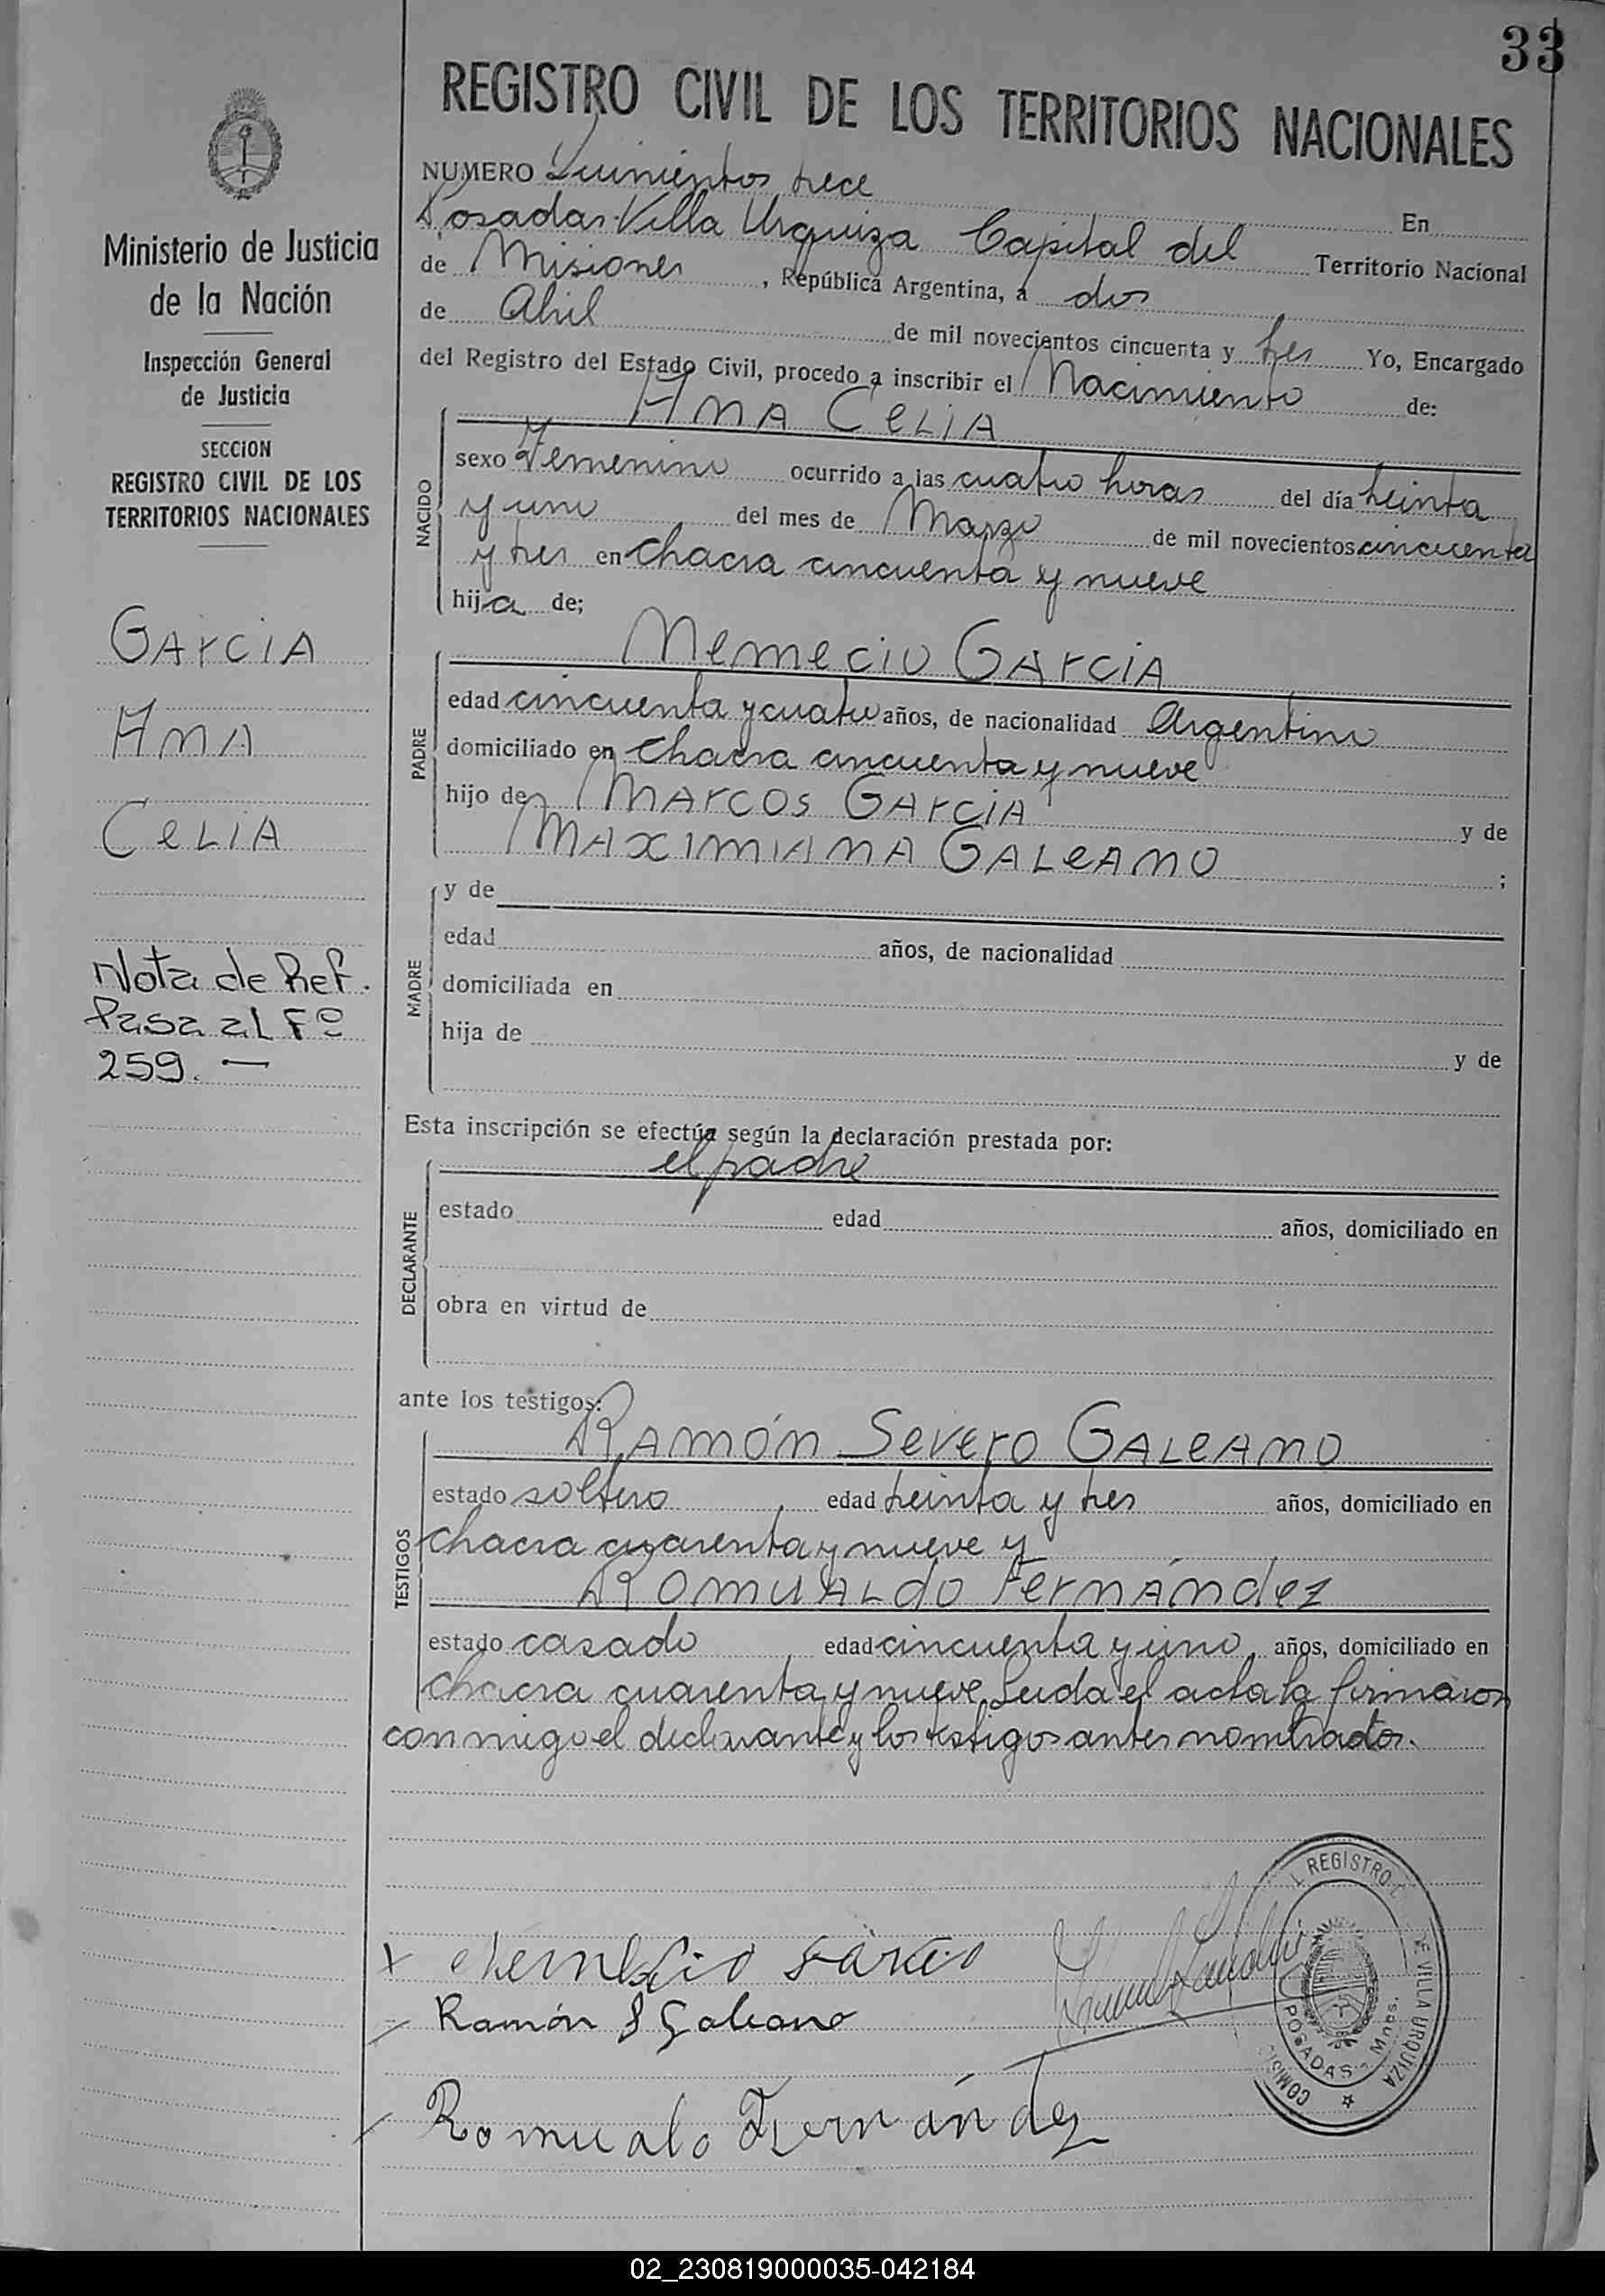 33
REGISTRO CIVIL DE LOS TERRITORIOS NACIONALES
Ministerio de Justicia
de la Nación
Inspección General
de Justicia
SECCION
REGISTRO CIVIL DE LOS
TERRITORIOS NACIONALES
GArciA
AnA
CeLiA
Nota de Ref.
Pasa al Fº
259. —
NUMERO Quinientos trece En
Posadas-Villa Urquiza Capital del Territorio Nacional
de Misiones, República Argentina, a dos
de Abril de mil novecientos cincuenta y tres Yo, Encargado
del Registro del Estado Civil, procedo a inscribir el Nacimiento de:
NACIDO
AnA CeLiA
sexo Femenino ocurrido a las cuatro horas del día treinta
y uno del mes de Marzo de mil novecientos cincuenta
y tres en chacra cincuenta y nueve
hija de;
PADRE
Nemecio GArciA
edad cincuenta y cuatro años, de nacionalidad Argentino
domiciliado en chacra cincuenta y nueve
hijo de MArcos GArciA y de
MAXIMIANA GALeAno ;
MADRE
y de
edad años, de nacionalidad
domiciliada en
hija de y de
Esta inscripción se efectúa según la declaración prestada por:
DECLARANTE
el padre
estado edad años, domiciliado en
obra en virtud de
ante los testigos:
TESTIGOS
RAmón Severo GALeAno
estado soltero edad treinta y tres años, domiciliado en
chacra cuarenta y nueve y
RomuALdo FernÁndez
estado casado edad cincuenta y uno años, domiciliado en
chacra cuarenta y nueve. Leida el acta la firmaron
conmigo el declarante y los testigos antes nombrados.
REGISTRO C
DE VILLA URQUIZA
COMISI
POSADAS - Mnes.
x Nemecio Garcia
Ramón S Galeano
Romualo Fernández
02_230819000035-042184